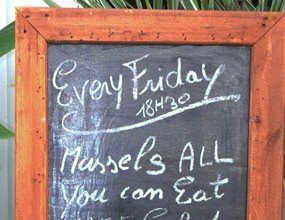 Every Friday
18H30
Mussels ALL
you can Eat